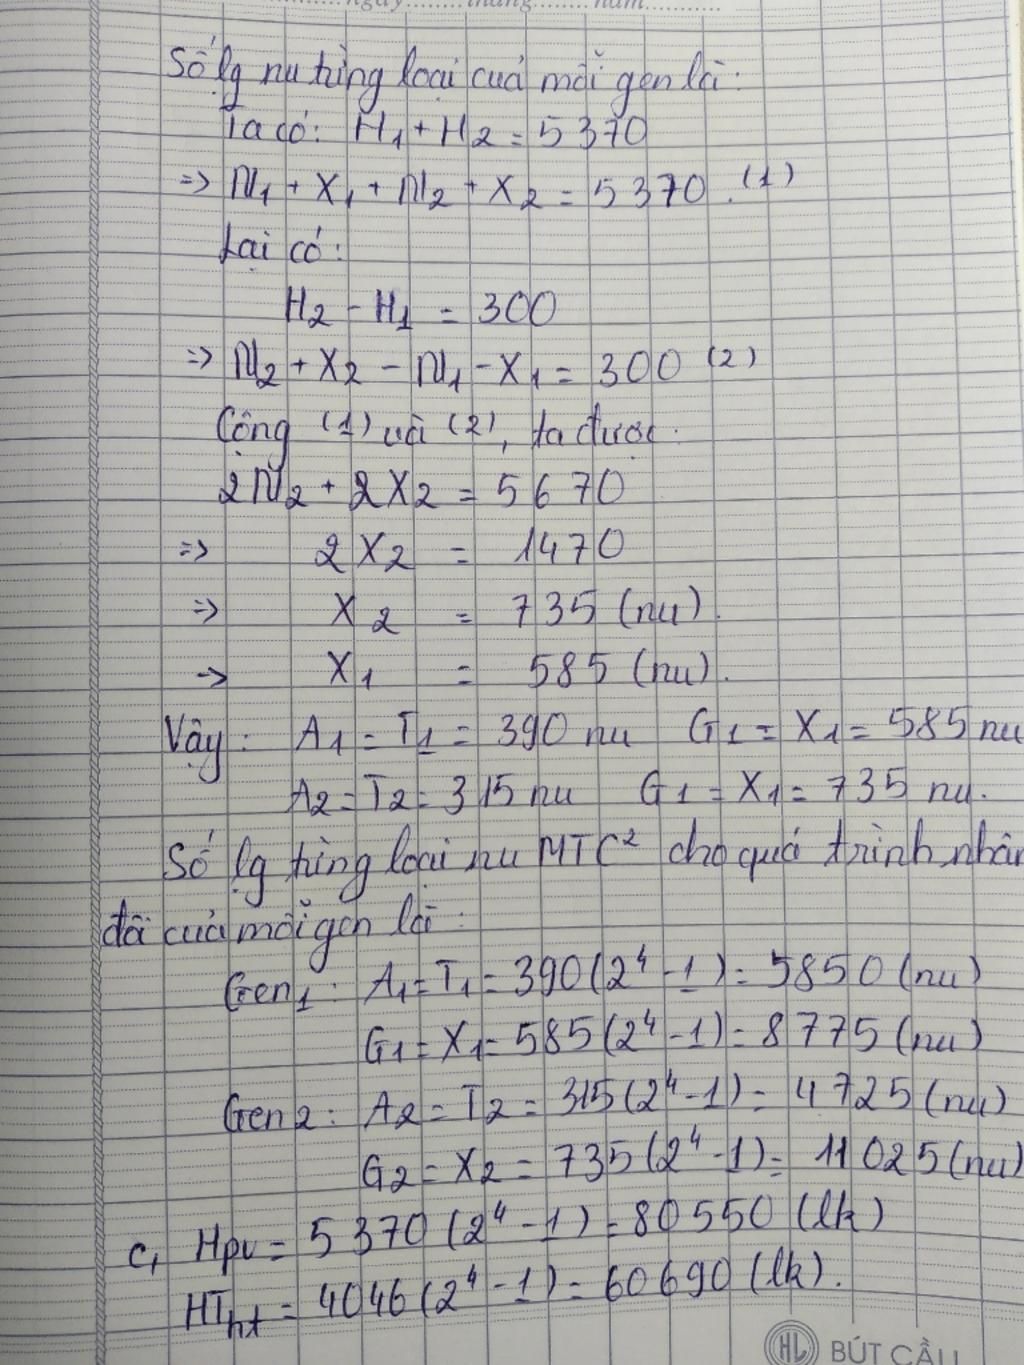 ngày.........tháng.........năm............
Số lg nu từng loại của mỗi gen là:
Ta có: H1 + H2 = 5370
=> N1 + X1 + N2 + X2 = 5370. (1)
Lại có:
H2 - H1 = 300
=> N2 + X2 - N1 - X1 = 300 (2)
Cộng (1) và (2), ta được:
2N2 + 2X2 = 5670
=> 2X2 = 1470
=> X2 = 735 (nu).
=> X1 = 585 (nu).
Vậy: A1 = T1 = 390 nu G1 = X1 = 585 nu
A2 = T2 = 315 nu G1 = X1 = 735 nu.
Số lg từng loại nu MTC² cho quá trình nhân
đôi của mỗi gen là:
Gen1: A1 = T1 = 390(2⁴ - 1) = 5850 (nu)
G1 = X1 = 585(2⁴ - 1) = 8775 (nu)
Gen2: A2 = T2 = 315(2⁴ - 1) = 4725 (nu)
G2 = X2 = 735(2⁴ - 1) = 11025 (nu)
c, Hpv = 5370(2⁴ - 1) = 80550 (lk)
HTht = 4046(2⁴ - 1) = 60690 (lk).
HL BÚT CẦU